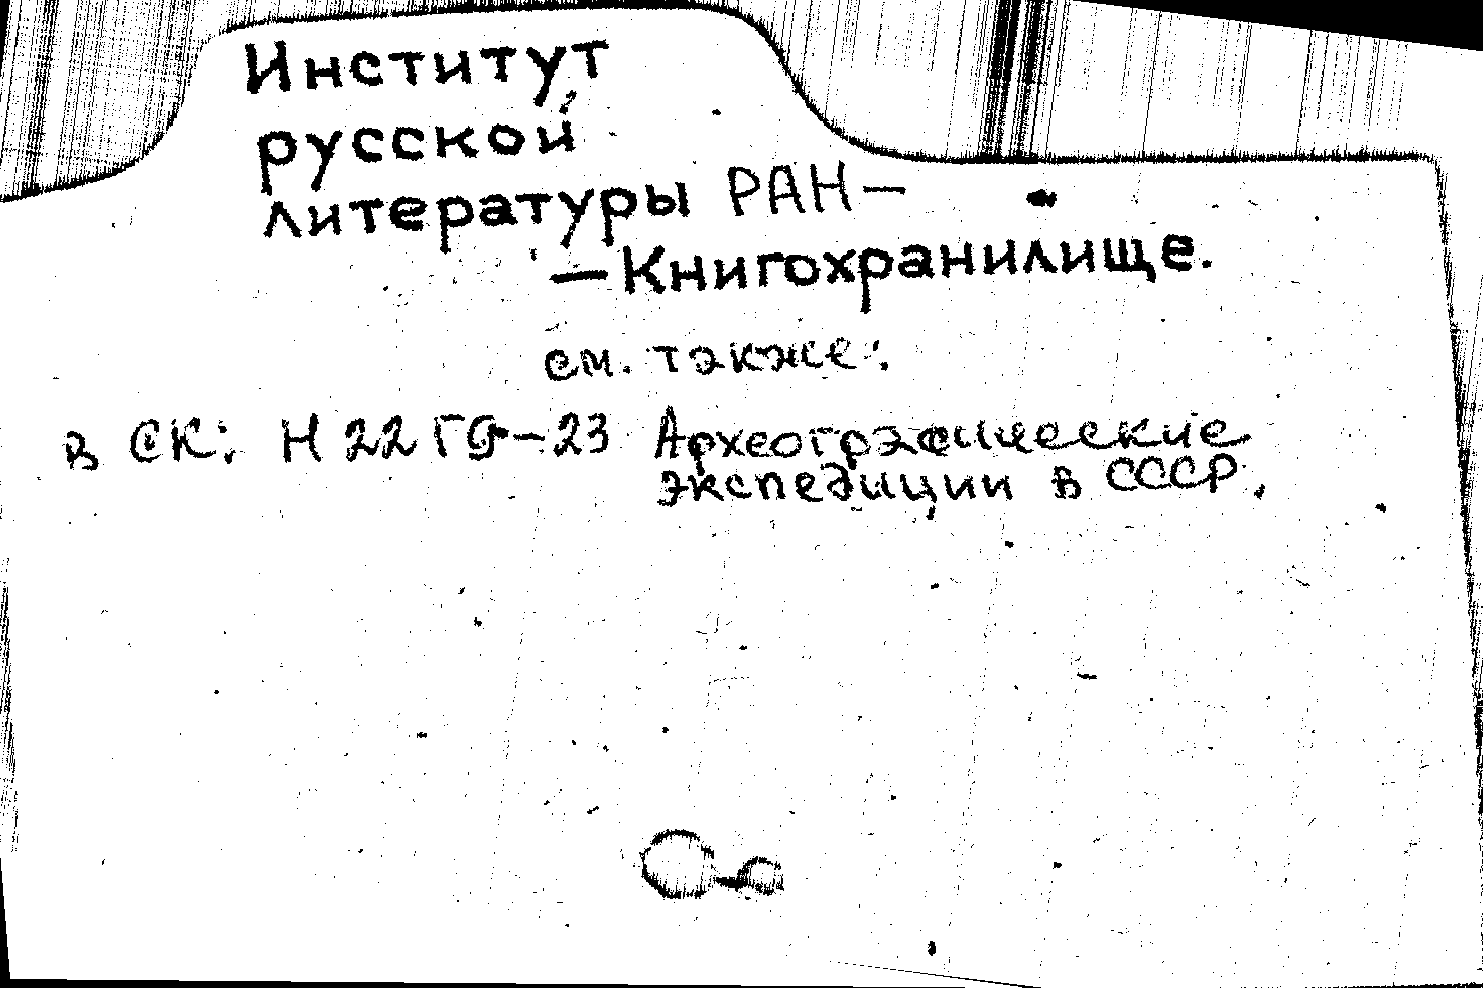 Институт
русской
литературы РАН —
— Книгохранилище.
см. также:
в СК: Н 22 Г9-23 Археографические
экспедиции в СССР.